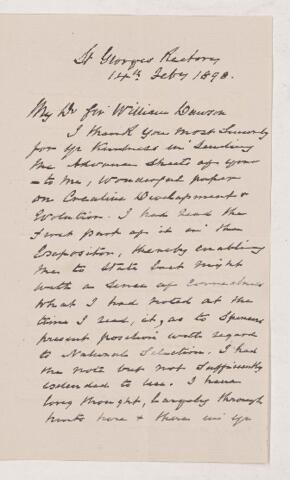 St Georges Rectory
14th Feby 1898.
My Dr Sir William Dawson
I thank you most sincerely
for yr kindness in sending
me advance sheets of your
– to me, wonderful paper
on Creative Development &
Evolution. I had read the
first part of it in the
Expositor, thereby enabling
me to state last night
with a sense of correctness
what I had noted at the
time I read it, as to Spencers
present position with regard
to Natural Selection. I had
the note but not sufficiently
to use. I have
long thought, largely through
hints here & there in yr